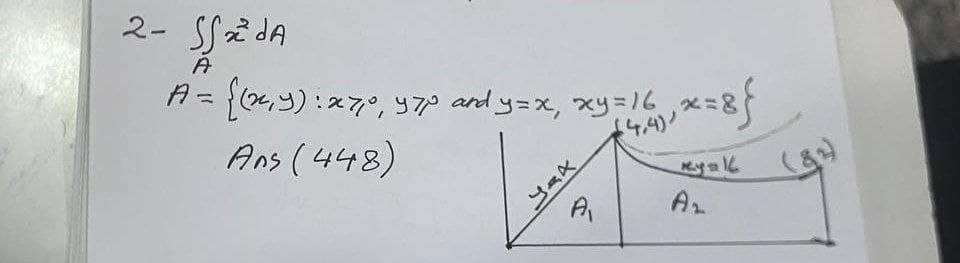 2- ∬ x² dA
A
A = {(x,y) : x≥0, y≥0 and y=x, xy=16, x=8}
(4,4)
Ans (448)
y=x
xy=16
(8,2)
A₁
A₂